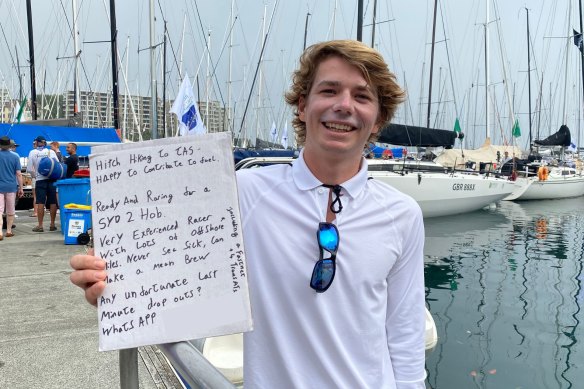 Hitch Hiking to TAS -
HAPPY to Contribute to fuel.
Ready And Raring for a
SYD 2 Hob.
Very Experienced Racer
with Lots of offshore
Miles. Never Sea Sick, Can
Make a mean Brew
Any unfortunate Last
Minute drop outs?
WhatsAPP
including 2 Fastnets
GBR 888X